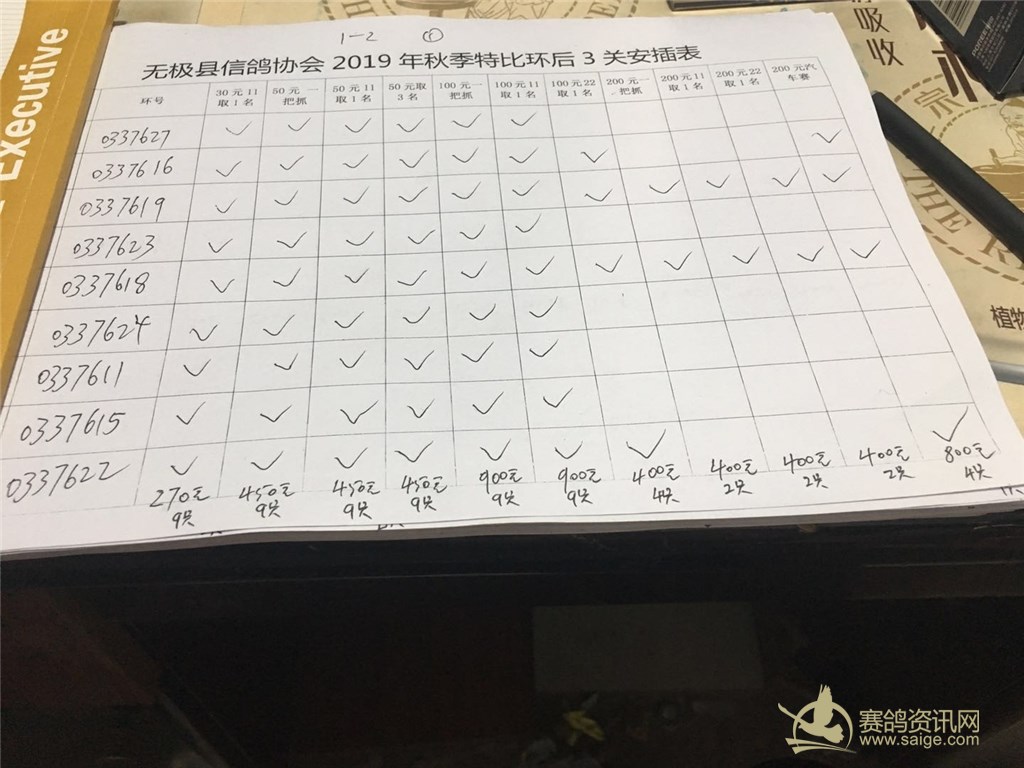 1-2 ①
无极县信鸽协会 2019 年秋季特比环后 3 关安插表
环号 30 元 11 取 1 名 50 元 一把抓 50 元 11 取 1 名 50 元取 3 名 100 元一把抓 100 元 11 取 1 名 100 元 22 取 1 名 200 元 一把抓 200 元 11 取 1 名 200 元 22 取 1 名 200 元汽车赛
0337627 ✓ ✓ ✓ ✓ ✓ ✓ ✓
0337616 ✓ ✓ ✓ ✓ ✓ ✓ ✓
0337619 ✓ ✓ ✓ ✓ ✓ ✓ ✓ ✓ ✓ ✓ ✓
0337623 ✓ ✓ ✓ ✓ ✓ ✓
0337618 ✓ ✓ ✓ ✓ ✓ ✓ ✓ ✓ ✓ ✓ ✓
0337624 ✓ ✓ ✓ ✓ ✓ ✓
0337611 ✓ ✓ ✓ ✓ ✓ ✓
0337615 ✓ ✓ ✓ ✓ ✓ ✓
0337622 ✓ ✓ ✓ ✓ ✓ ✓ ✓ ✓
270元 450元 450元 450元 900元 900元 400元 400元 400元 400元 800元
9只 9只 9只 9只 9只 9只 4只 2只 2只 2只 4只
Executive
吸收
宗
植物
赛鸽资讯网
www.saige.com